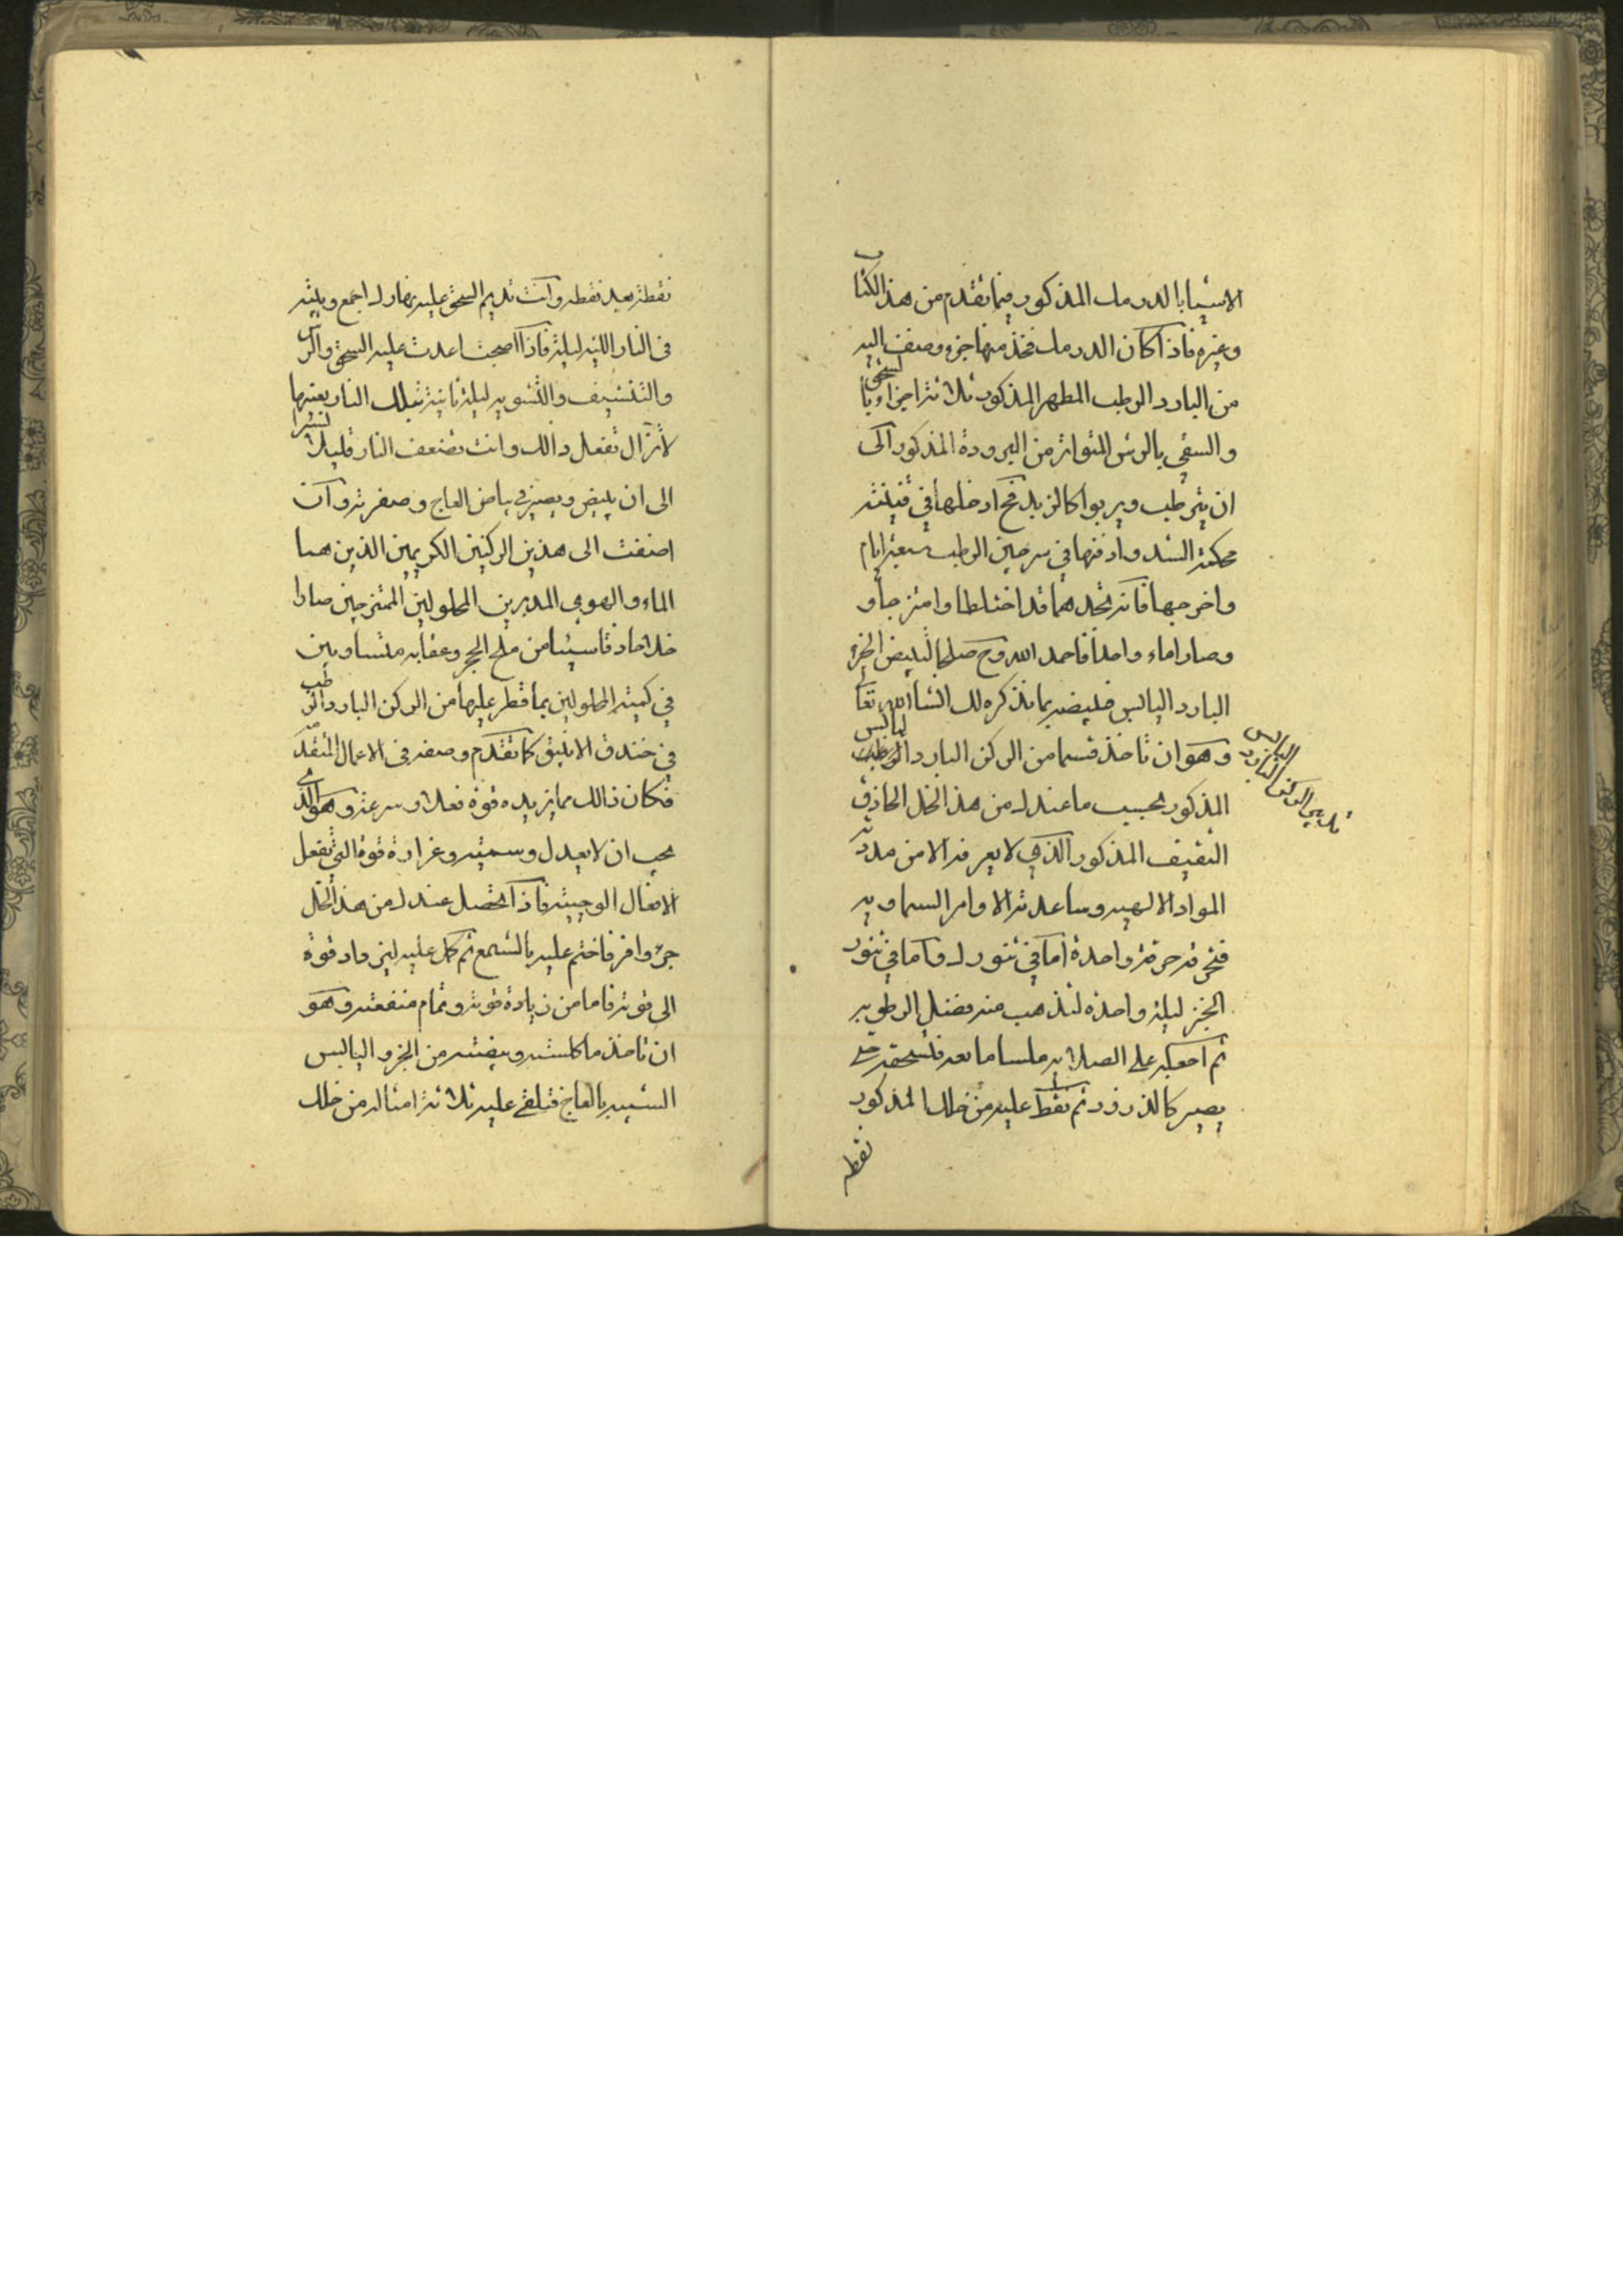 الاشيا بالدرمك المذكور فيما تقدم من هذا الكتاب
وغيره فاذا كان الدرمك فخذ منها جزو وضف اليه
من البارد الرطب المطهر المذكور ثلاثة اجزا
والسقي بالرش المتواتر من البرودة المذكور الى
ان يترطب ويربوا كالزبد فح ادخلها في قنينة
محكمة الشد وادفنها في سرجين الرطب سبعة ايام
واخرجها فانه تجدهما قد اختلطا وامتزجا و
وصارا ماء واحدا فاحمد الله وح صلحا لتبيض الجزء
البارد اليابس فبيضه بما نذكره لك انشا الله تعالى
وهو ان تاخذ قسما من الركن البارد اليابس
تدبير الركن البارد اليابس
المذكور بحسب ما عندك من هذا الخل الحاذق
الثقيف المذكور الذي لا يعرفه الا من مددته
المواد الالهيه وساعدته الاوامر السماويه
فتحرقه حرقة واحدة اما في تنورك واما في تنور
الخبز ليلة واحدة لتذهب منه فضل الرطوبه
ثم اجعله على الصلايه ملسا مانعه فتسحقه حتى
يصير كالذرور ثم نقط عليه من خلك المذكور
نقطه
نقطة بعد نقطه وانت تديم السحق عليه نهارك اجمع وبيته
في النار اللينه ليلة فاذا اصبحت اعدت عليه السحق والرش
والتنشيف والتشويه ليلة ثانية بتلك النار بعينها
لا تزال تفعل ذالك وانت تضعف النار قليلا
الى ان يبيض ويصير في بياض العاج وصفرته وان
اضفت الى هذين الركنين الكريمين الذين هما
الماء والهوى المدبرين المحلولين الممتزجين صارا
خلا حاذقا شيئا من ملح الحجر وعقابه متساويين
في كمية المحلولين بما قطر عليها من الركن البارد الرطب
في خندق الانبيق كما تقدم وصفه في الاعمال المتقدمة
فكان ذالك مما يزيده قوة فعلا وسرعة وهو الذي
يجب ان لا يعدل وسميته وغزارة قوة التي تفعل
الافعال الوجيته فاذا تحصل عندك من هذا الخل
جزء وافر فاختم عليه بالشمع
الى قوته فاما من زيادة قوته وتمام منفعته وهو
ان تاخذ ما كلسته وبيضته من الجزو اليابس
الشبيه بالعاج فتلقي عليه ثلاثة امثاله من خلك